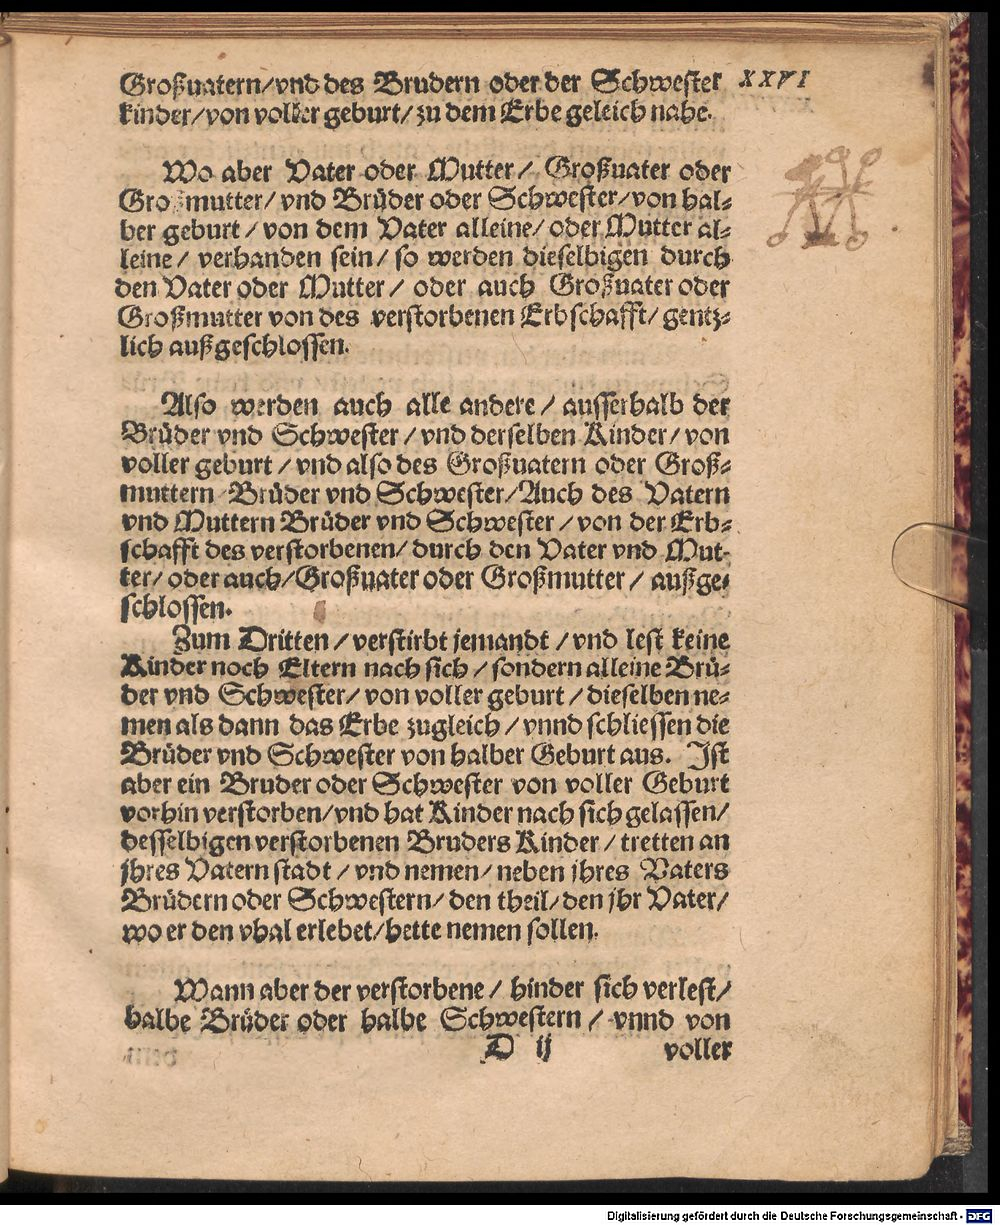 Großuatern/vnd des Brudern oder der Schwester XXVI
kinder/von voller geburt/zu dem Erbe geleich nahe.
Wo aber Vater oder Mutter/ Großuater oder
Großmutter/ vnd Brüder oder Schwester/von hal-
ber geburt/von dem Vater alleine/oder Mutter al-
leine/ verhanden sein/so werden dieselbigen durch
den Vater oder Mutter/ oder auch Großuater oder
Großmutter von des verstorbenen Erbschafft/gentz-
lich außgeschlossen.
Also werden auch alle andere/ ausserhalb der
Brüder vnd Schwester/vnd derselben Kinder/von
voller geburt/vnd also des Großuatern oder Groß-
muttern Brüder vnd Schwester/Auch des Vatern
vnd Muttern Brüder vnd Schwester/von der Erb-
schafft des verstorbenen/durch den Vater vnd Mut-
ter/oder auch/Großuater oder Großmutter/ außge-
schlossen.
Zum Dritten/verstirbt jemandt/vnd lest keine
Kinder noch Eltern nach sich/sondern alleine Brü-
der vnd Schwester/von voller geburt/dieselben ne-
men als dann das Erbe zugleich/vnnd schliessen die
Brüder vnd Schwester von halber Geburt aus. Ist
aber ein Bruder oder Schwester von voller Geburt
vorhin verstorben/vnd hat Kinder nach sich gelassen/
desselbigen verstorbenen Bruders Kinder/tretten an
jhres Vatern stadt/vnd nemen/neben jhres Vaters
Brüdern oder Schwestern/den theil/den jhr Vater/
wo er den vhal erlebet/hette nemen sollen.
Wann aber der verstorbene/ hinder sich verlest/
halbe Brüder oder halbe Schwestern/vnnd von
D ij voller
Digitalisierung gefördert durch die Deutsche Forschungsgemeinschaft - DFG